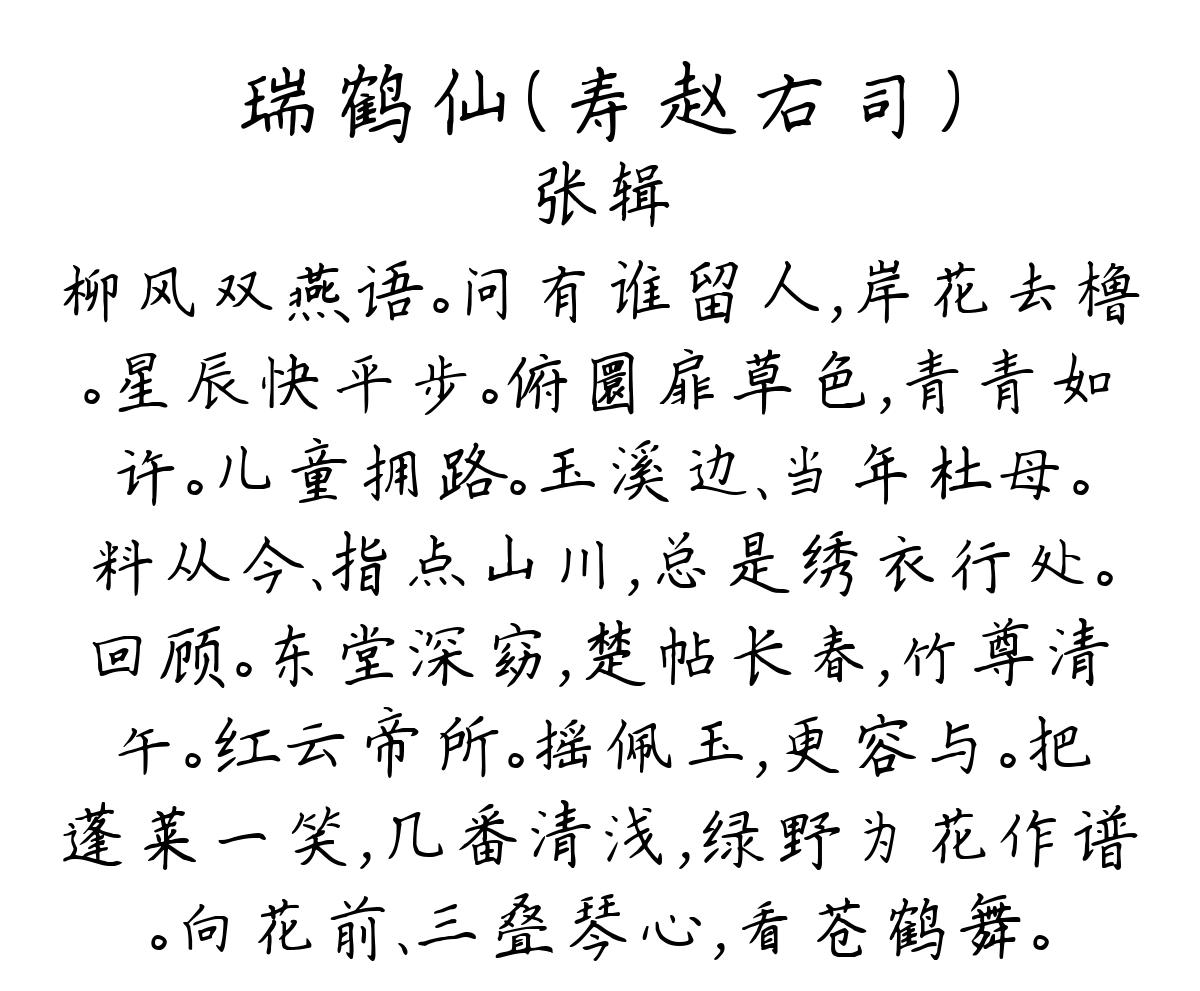 瑞鹤仙(寿赵右司)
张辑
柳风双燕语。问有谁留人,岸花去橹
。星辰快平步。俯圜扉草色,青青如
许。儿童拥路。玉溪边、当年杜母。
料从今、指点山川,总是绣衣行处。
回顾。东堂深窈,楚帖长春,竹尊清
午。红云帝所。摇佩玉,更容与。把
蓬莱一笑,几番清浅,绿野为花作谱
。向花前、三叠琴心,看苍鹤舞。